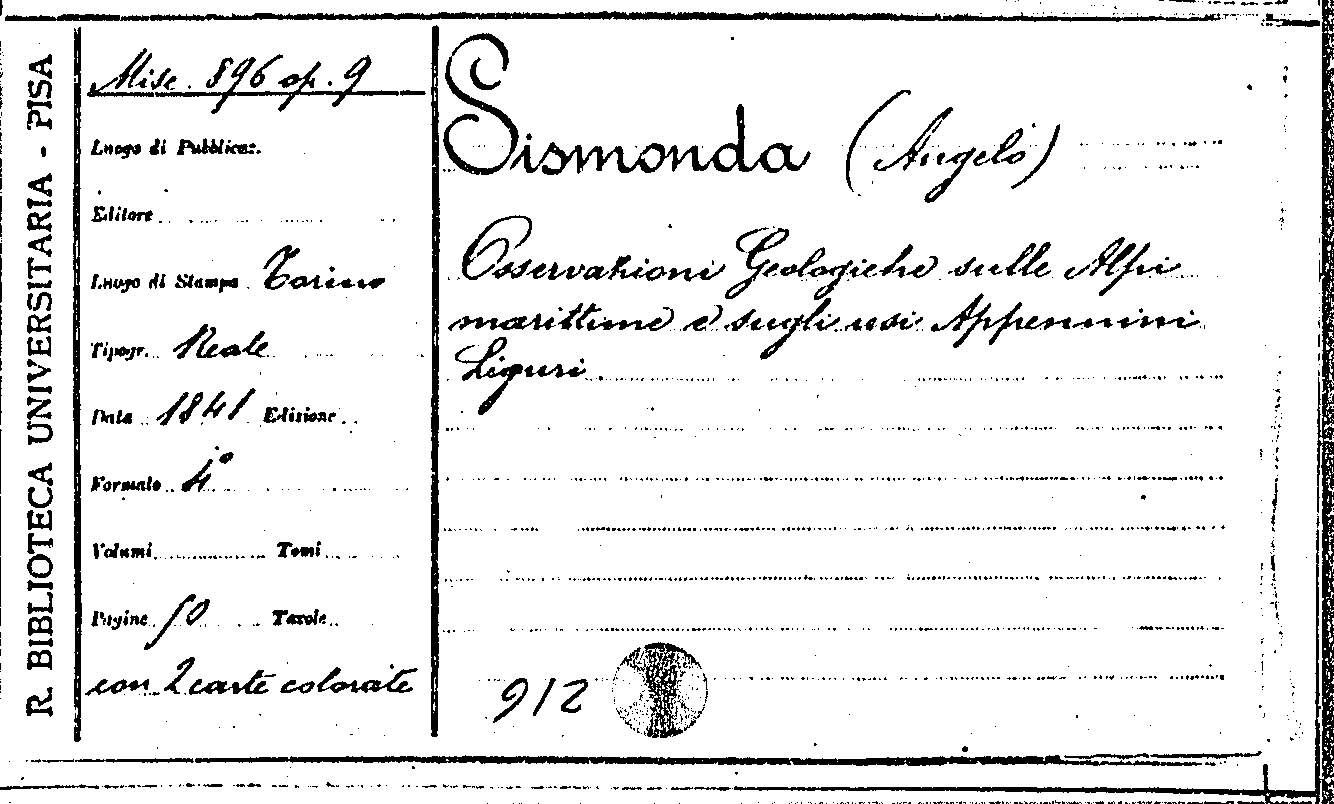 R. BIBLIOTECA UNIVERSITARIA - PISA
Misc. 896 op. 9
Luogo di Pubblicaz.
Editore
Luogo di Stampa Torino
Tipogr. Reale
Data 1841 Edizione
Formato 4°
Volumi Tomi
Pagine 50 Tavole
con 2 carte colorate
Sismonda (Angelo)
Osservazioni Geologiche sulle Alpi
marittime e sugli Appennini
Liguri.
912